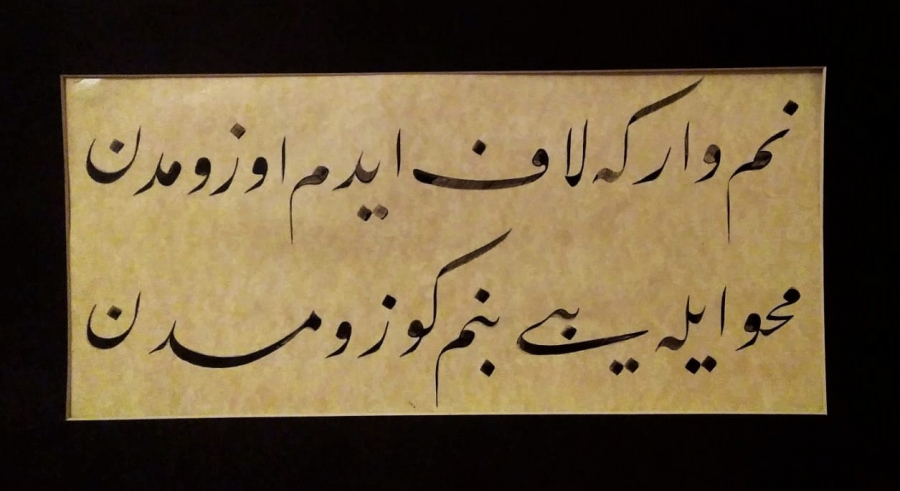 نم وار كه لاف ايدم اوزومدن
محو ايله بنى بنم كوزومدن